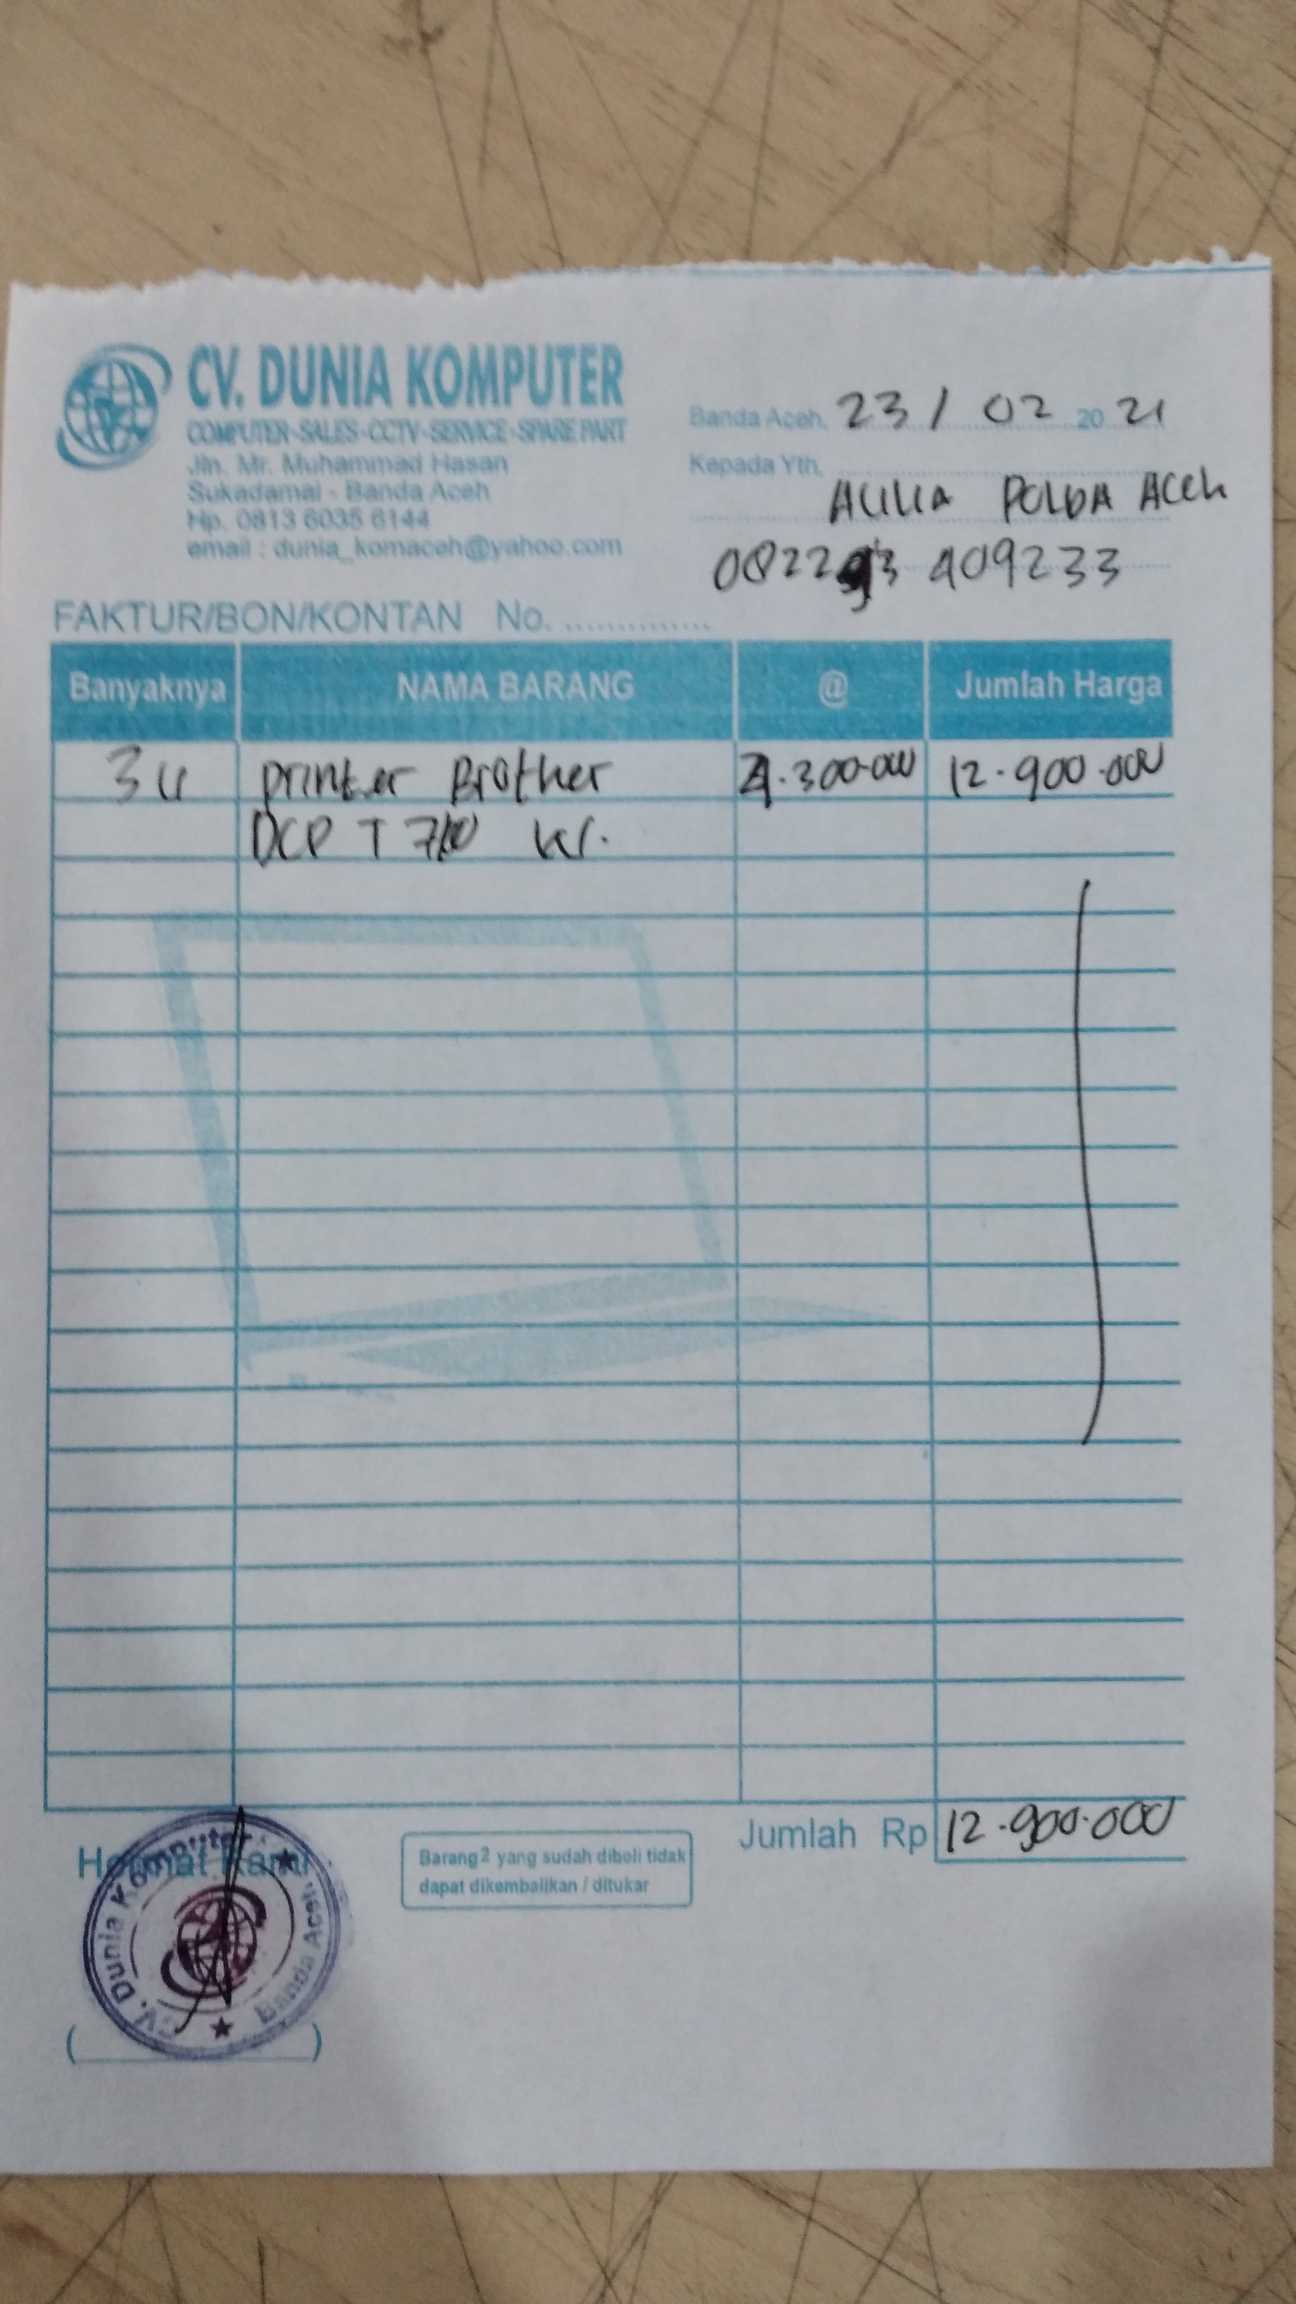 CV. DUNIA KOMPUTER
COMPUTER - SALES - CCTV - SERVICE - SPARE PART
Jln. Mr. Muhammad Hasan
Sukadamai - Banda Aceh
Hp. 0813 6035 6144
email : dunia_komaceh@yahoo.com
Banda Aceh, 23 / 02 20 21
Kepada Yth.
POLDA ACeh
409233
FAKTUR/BON/KONTAN No. ..............
Banyaknya NAMA BARANG @ Jumlah Harga
3 u printer Brother 4.300.000 12.900.000
DCP T 710
Jumlah Rp 12.900.000
Hormat Kami
Barang2 yang sudah dibeli tidak
dapat dikembalikan / ditukar
CV. Dunia Komputer
Banda Aceh